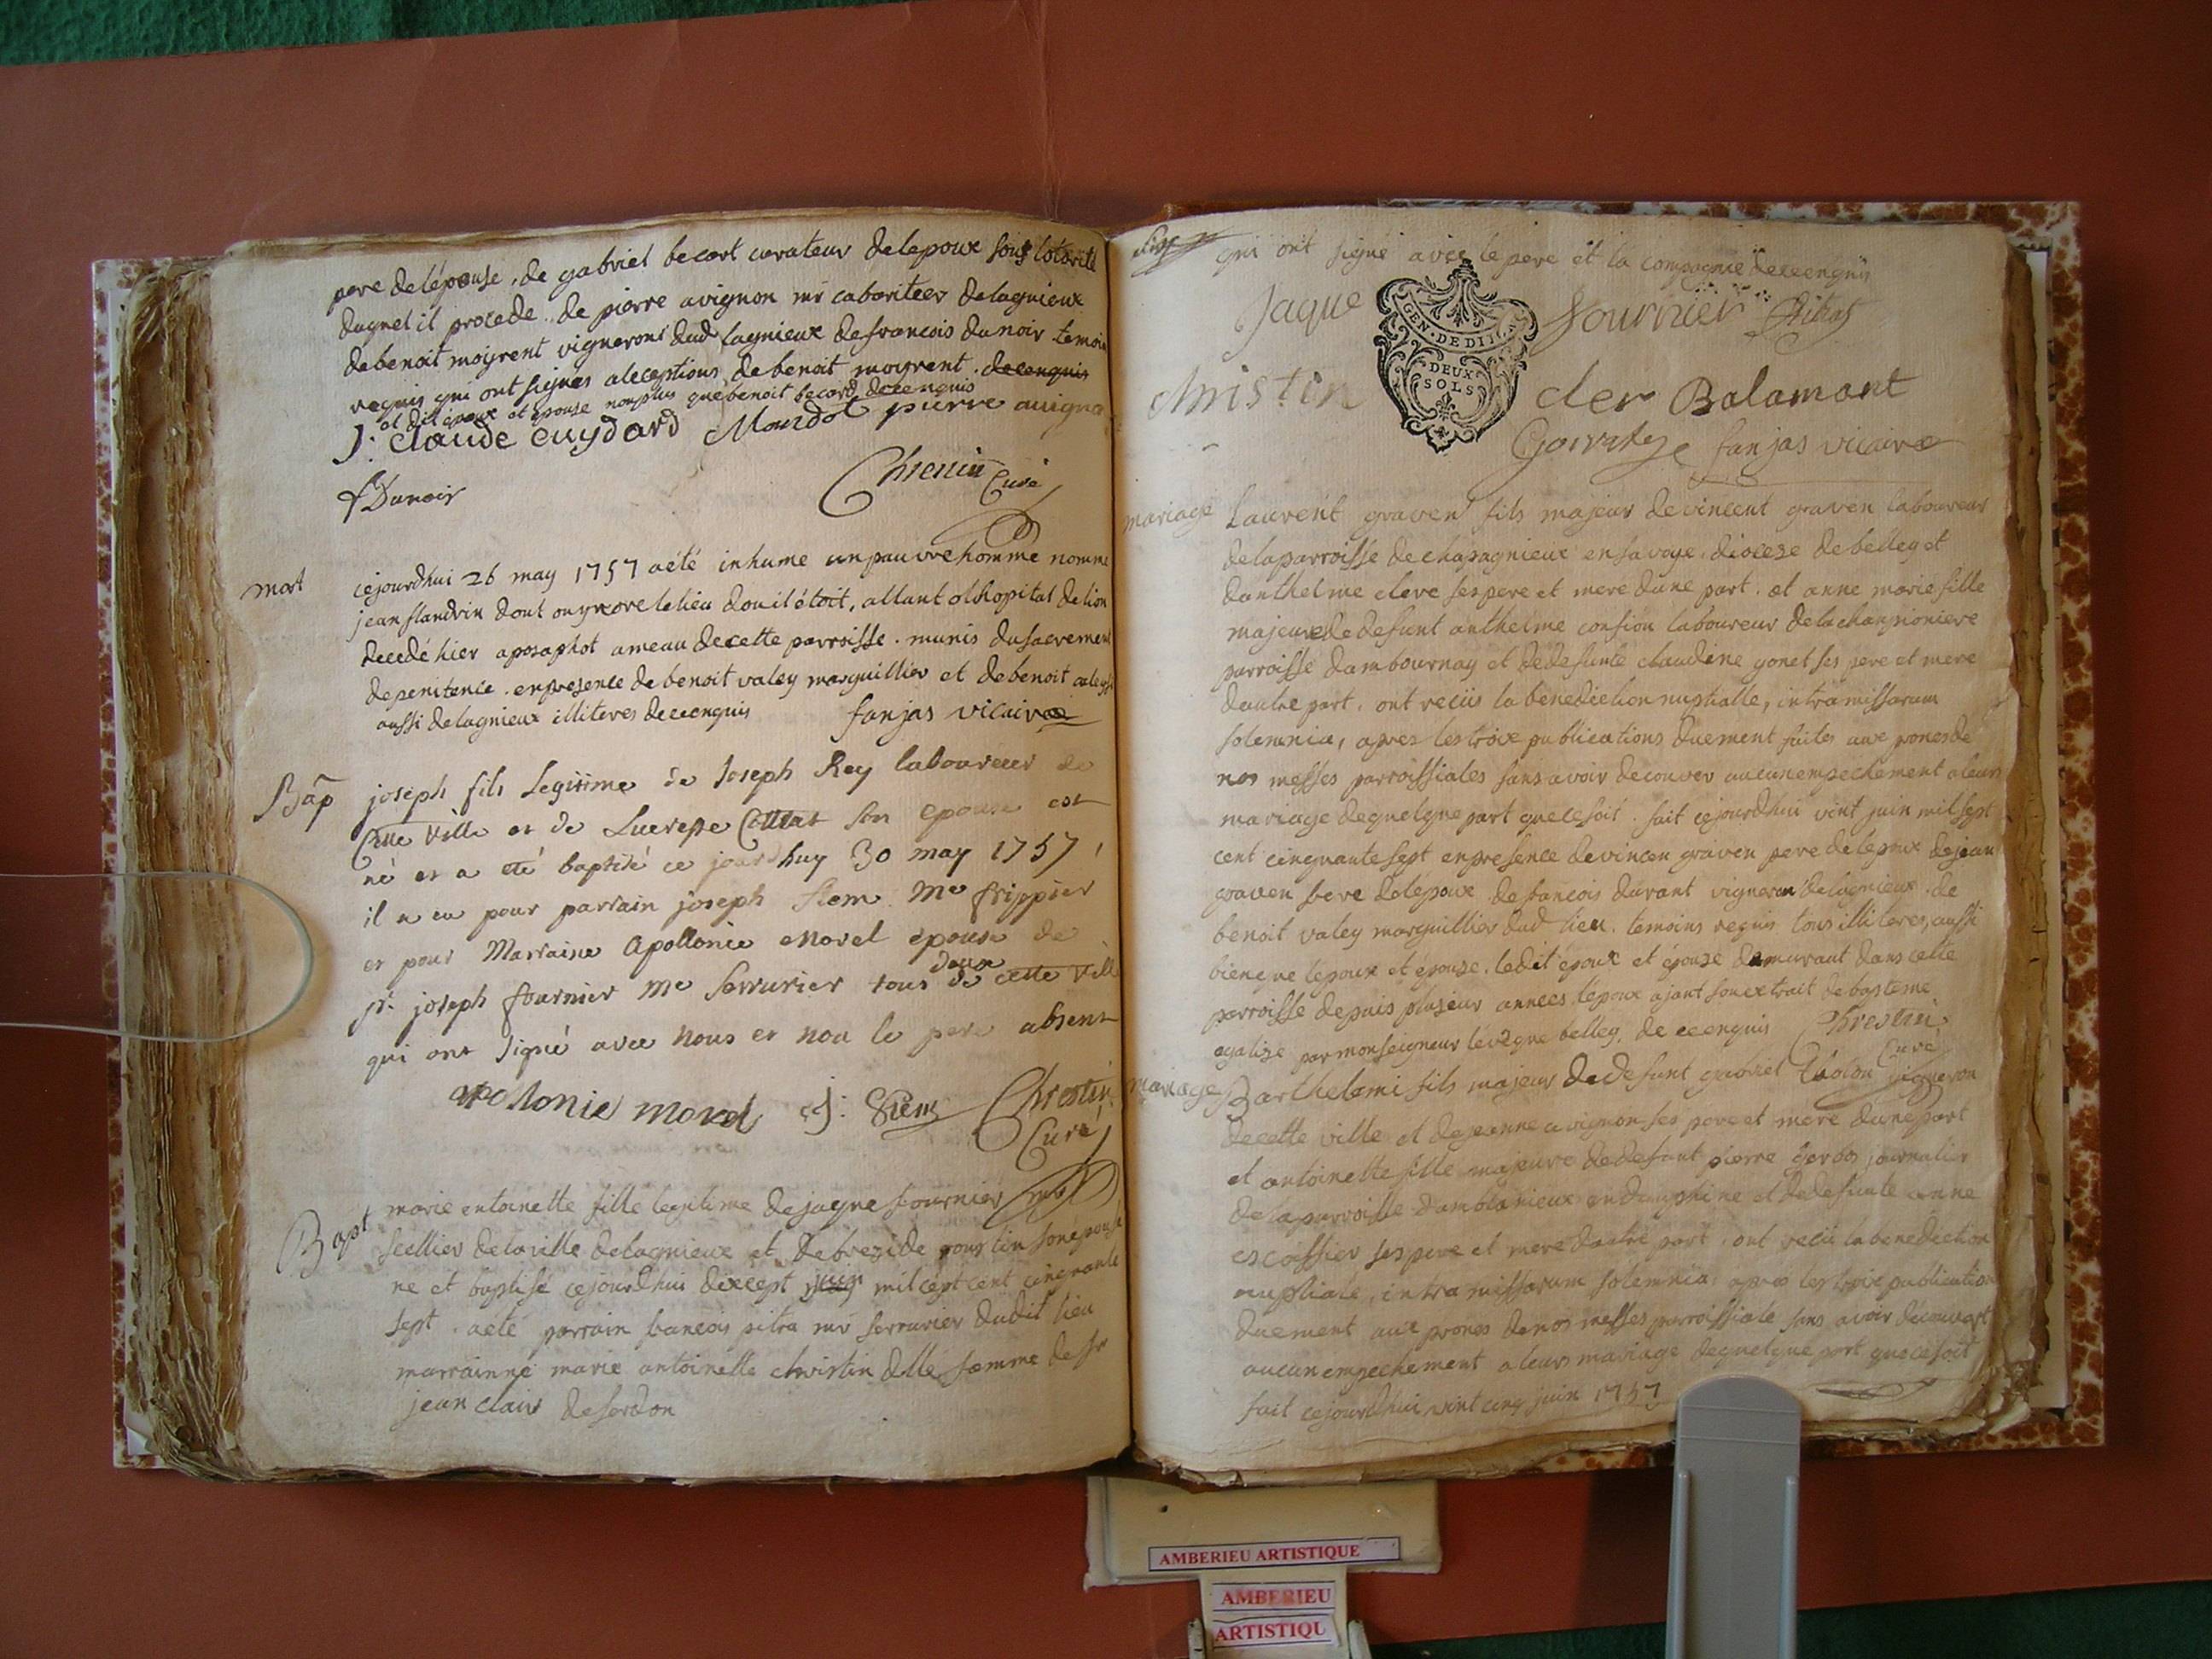 pere delépouse, de gabriel becort curateur delepoux sous lotorité
duquel il procede. de pierre avignon mr cabariteer delagnieux
debenoit moyrent vigneron dud lagnieux defrancois dunoir temoin
requis qui ont signes aleceptions de benoit moyrent. decenquis
et dit epoux et epouse nonplus que benoit becord decenquis
J: Claude cuydard Mondot pierre avigno
f Dunoir Chrestin Curé
mort cejourdhui 26 may 1757 aété inhume unpauvre homme nomme
jean flandrin dont on ignore lelieu douil étoit, allant a lhopital de lion
decedé hier aposaphot ameau decette parroisse. munis dusacrement
depenitence. enpresence de benoit valey marguillier et debenoit
aussi delagnieux illiteres decenquis fanjas vicaire
Bap joseph fils Legitime de Joseph Rey laboureur de
Cette Ville et de Lucresse Cottat son epouse est
né et a eté baptisé ce jourdhuy 30 may 1757,
il a eu pour parrain joseph Siem Me frippier
et pour Marraine Apollonie Morel epouse de
Sr. joseph fournier Me Serrurier tous deux de cette Ville
qui ont signé avec nous et non le pere absent
apolonie morel J: Siem Chrestin
Curé
Bapt marie entoinette fille legitime dejaque fournier mr
scellier delaville delagnieux et debrezide poustin son épouse
ne et baptisé cejourdhui dixcept juin milceptcent cinquante
sept. aeté parrain francois pitra mr serrurier dudit lieu
marrainne marie antoinette christin dlle femme de sr
jean clair deserdon
qui ont signé avec le pere et la compagnie decenquis
Jaque fournier Pitras
GEN·DE DIJ
DEUX
SOLS
christin cler Balamant
fanjas vicaire
mariage Laurent graven fils majeur devincent graven laboureur
delaparroisse de chapagnieux ensavoye. diocese debelley et
danthelme cleve ses pere et mere dune part. et anne marie fille
majeure de defunt anthelme confion laboureur delachampioniere
parroisse dambournay et dedefunte claudine gonet ses pere et mere
dautre part. ont recüs la benediction nuptialle, intra missarum
solemnia, apres lestroix publications duement faites aux prones de
nos messes parroissiales sans avoir decouver aucun empechement a leur
mariage dequelque part que ce soit. fait cejourdhui vint juin mil sept
cent cinquante sept enpresence devincen graven pere delépoux dejean
graven frere delépoux de francois durant vigneron delagnieux. de
benoit valey marguillier dud lieu. temoins requis tous illiteres, aussi
bien que lepoux et épouse. ledit époux et épouse demurant dans cette
parroisse depuis plusieur annees. lépoux ajant sonextrait debapteme
egalize par monseigneur lévêque belley. de cenquis Chrestin
Curé
mariage Barthelemi fils majeur dedefunt gabriel vigneron
decette ville et dejeanne avignon ses pere et mere dunepart
et antoinette fille majeure dedefunt pierre gerbos journalier
delaparroisse damblanieux endauphine et dedefunte anne
escoissier ses pere et mere dautre part. ont recü labenediction
nuptiale, intra missarum solemnia. apres lestroix publication
duement aux prones denos messes parroissiale sans avoir decouvert
aucun empechement a leurs mariage dequelque part que ce soit
fait cejourdhui vint cinq juin 1757
AMBERIEU ARTISTIQUE
AMBERIEU
ARTISTIQU